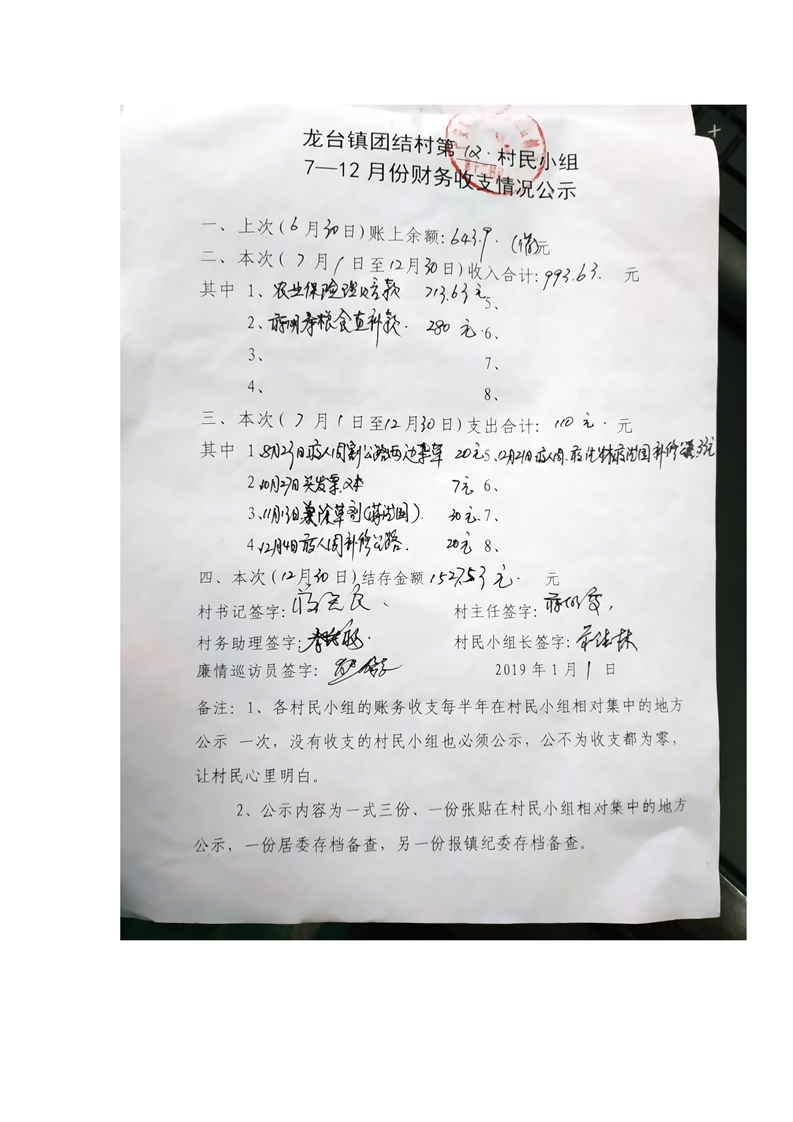 龙台镇团结村第12·村民小组
7—12月份财务收支情况公示
一、上次(6月30日)账上余额:643.9·(借)元
二、本次(7月1日至12月30日)收入合计:993.63.元
其中 1、农业保险理赔款 713.63元 5、
2、 粮食直补款· 280元·6、
3、 7、
4、 8、
三、本次(7月1日至12月30日)支出合计: 110元·元
其中 1 8月23日 割公路两边杂草 20元5、12月21日 补修公路 元
2 10月27日买发票2本 7元 6、
3 11月13日 除草剂 30元.7、
4 12月4日 补修公路. 20元 8、
四、本次(12月30日)结存金额1527.53元·元
村书记签字: 村主任签字:
村务助理签字: 村民小组长签字:
廉情巡访员签字: 2019年1月1日
备注:1、各村民小组的账务收支每半年在村民小组相对集中的地方
公示 一次,没有收支的村民小组也必须公示,公不为收支都为零,
让村民心里明白。
2、公示内容为一式三份、一份张贴在村民小组相对集中的地方
公示,一份居委存档备查,另一份报镇纪委存档备查。